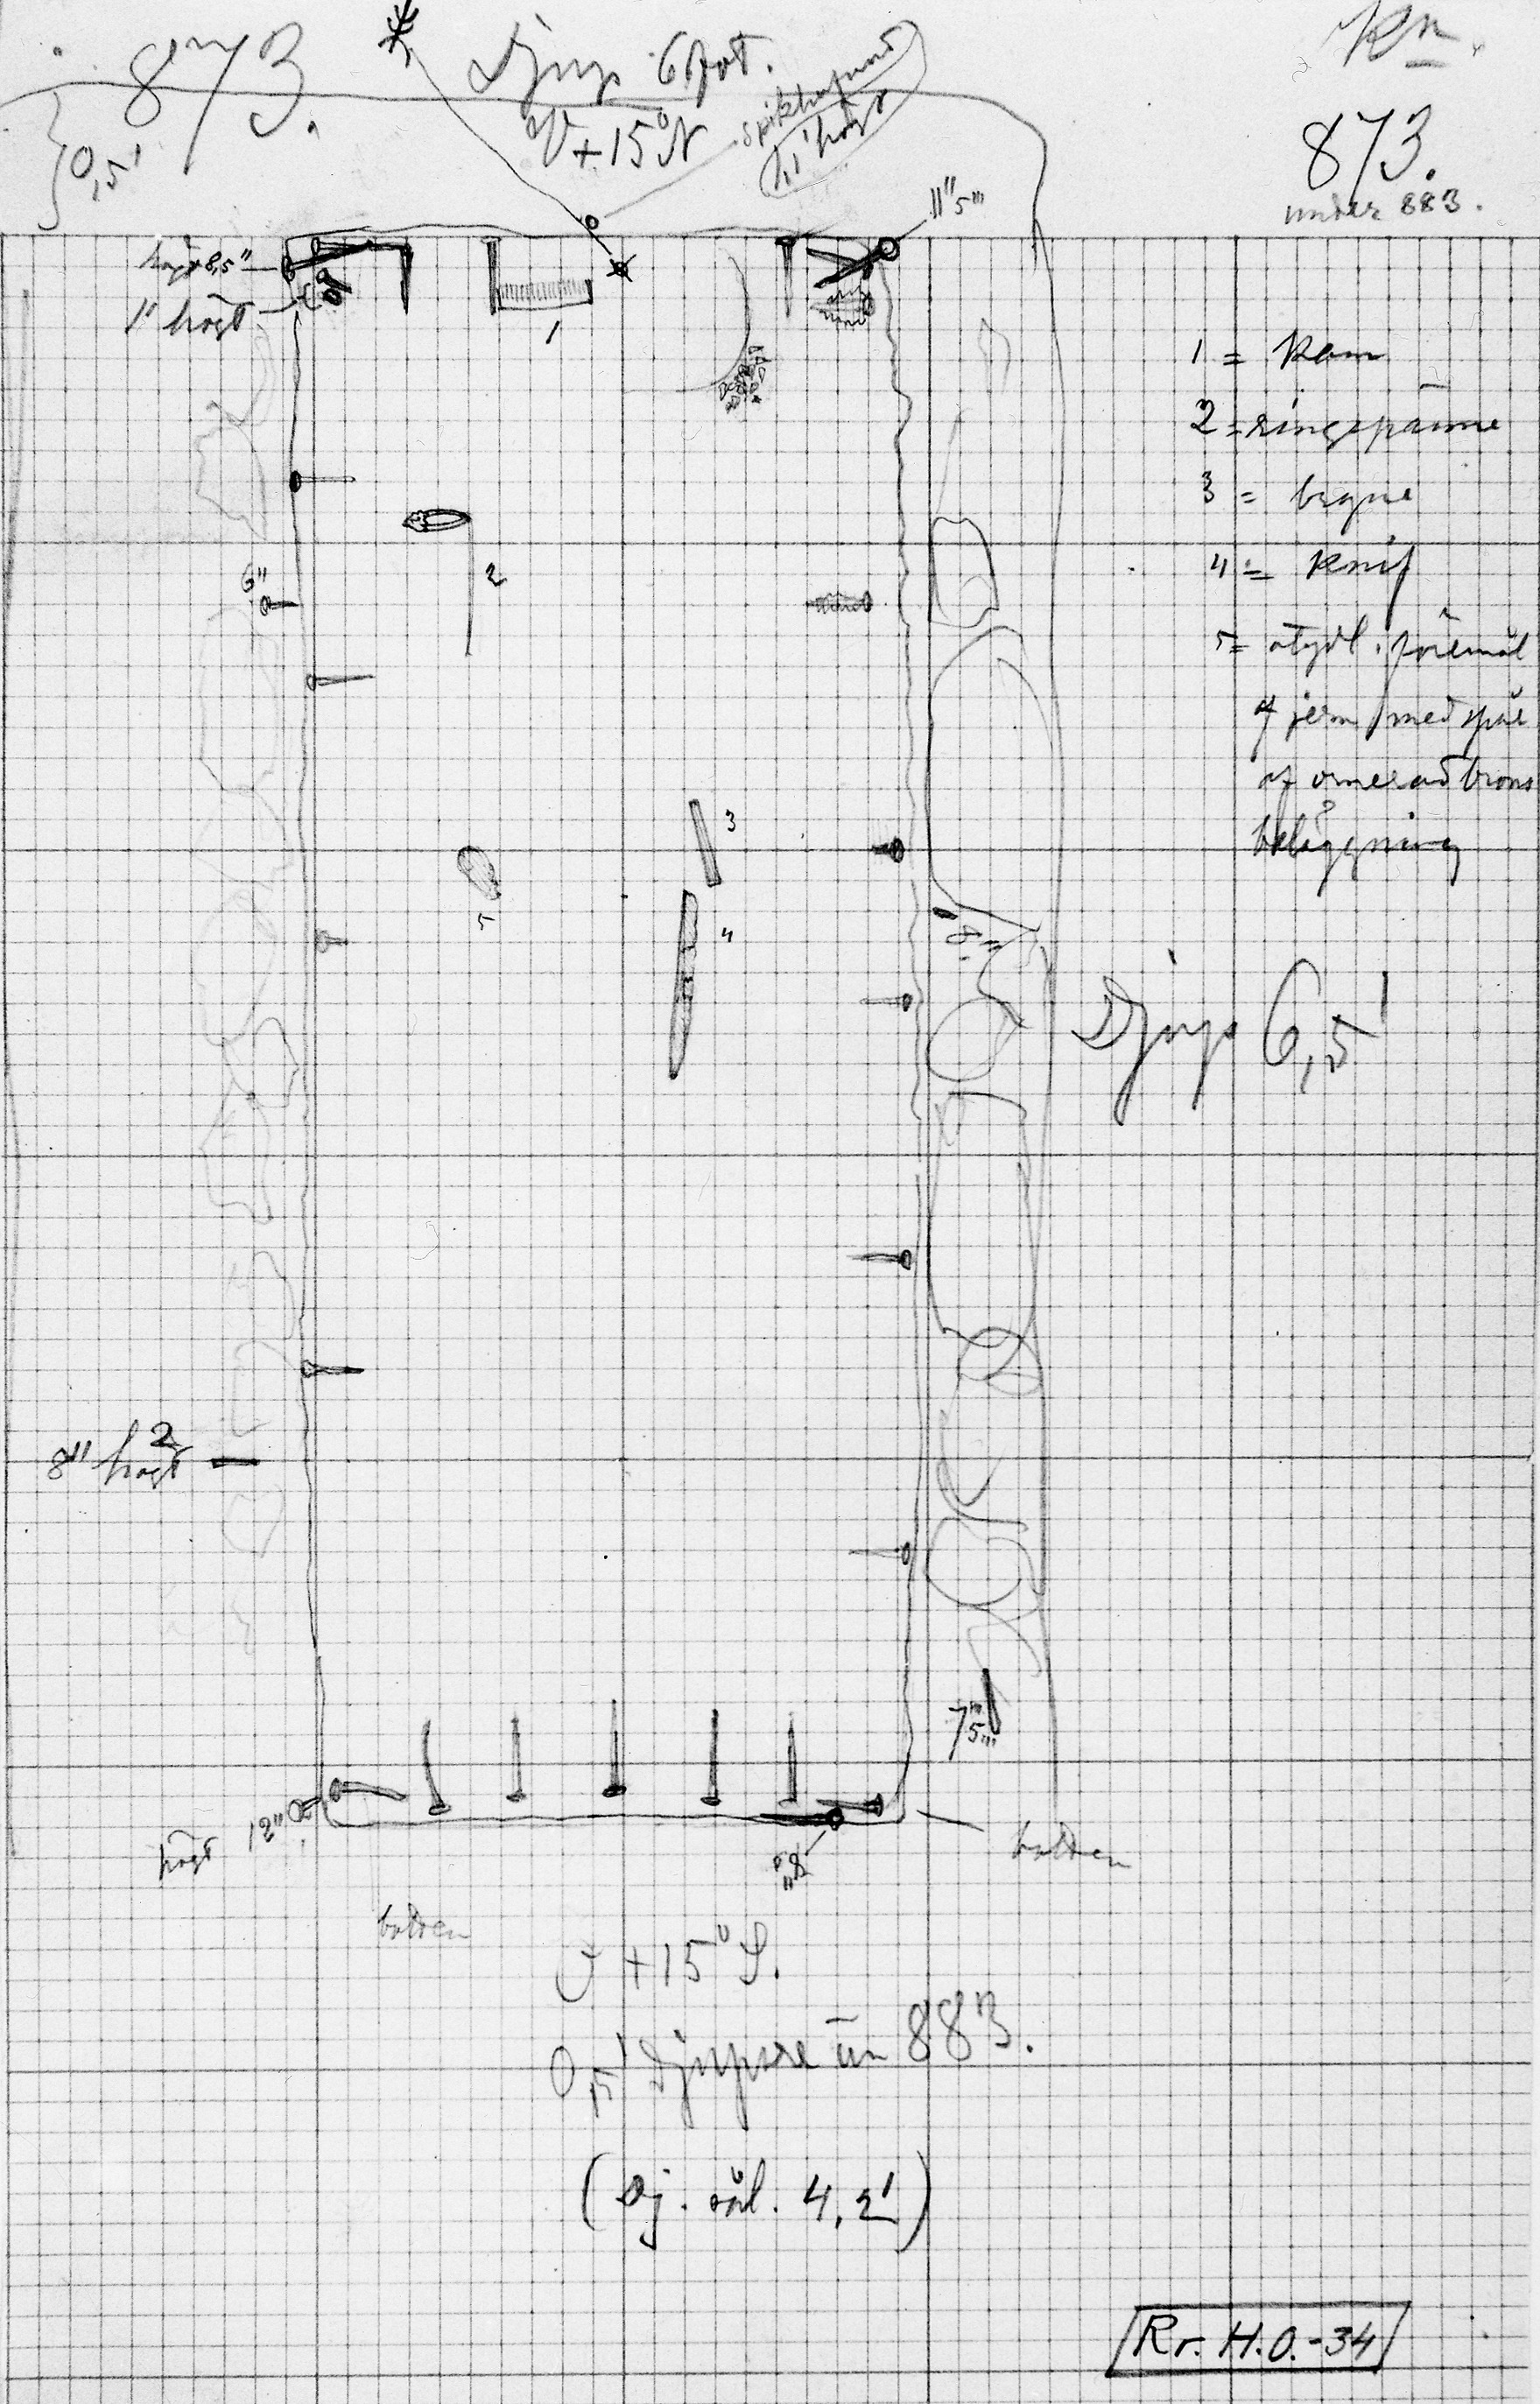 873.
Djup 6 fot.
V+15°N
spikhufvud
1,1' högt
0,5'
Kn.
873.
under 883.
11"5"'
högt 8,5"
1" högt
1
1 = Kam
2 = ringspänne
3 = bryne
4 = Knif
5 = otydl. föremål
af jern med spår
af ornerad brons
beläggning
2
6"
3
4
5
8"
Djup 6,5'
8" högt
75"'
högt 12"
8"
botten
botten
O+15°S.
0,5' djupare än 883.
(Dj. ål. 4,2')
Rr. H.O.-34